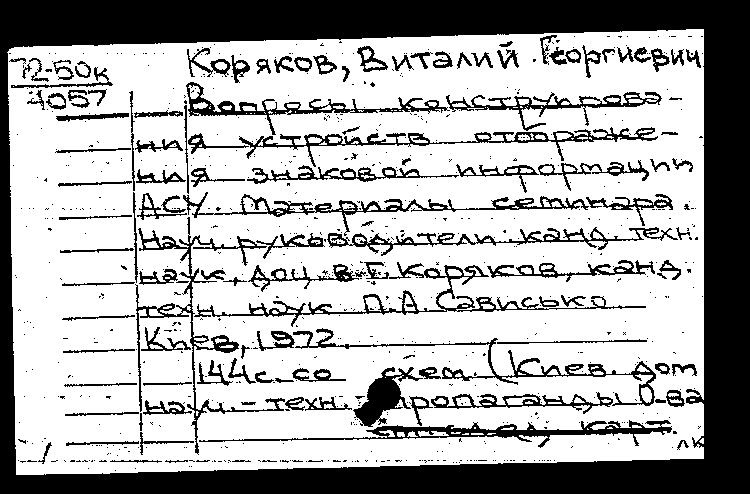 72-50к Коряков, Виталий Георгиевич
4057 Вопросы конструирова-
ния устройств отображе-
ния знаковой информации
АСУ. Материалы семинара.
Науч. руководители: канд. техн.
наук, доц. В.Г. Коряков, канд.
техн. наук П.А. Сависько.
Киев, 1972.
144 с. со схем. (Киев. дом
науч.-техн. пропаганды О-ва
карт.